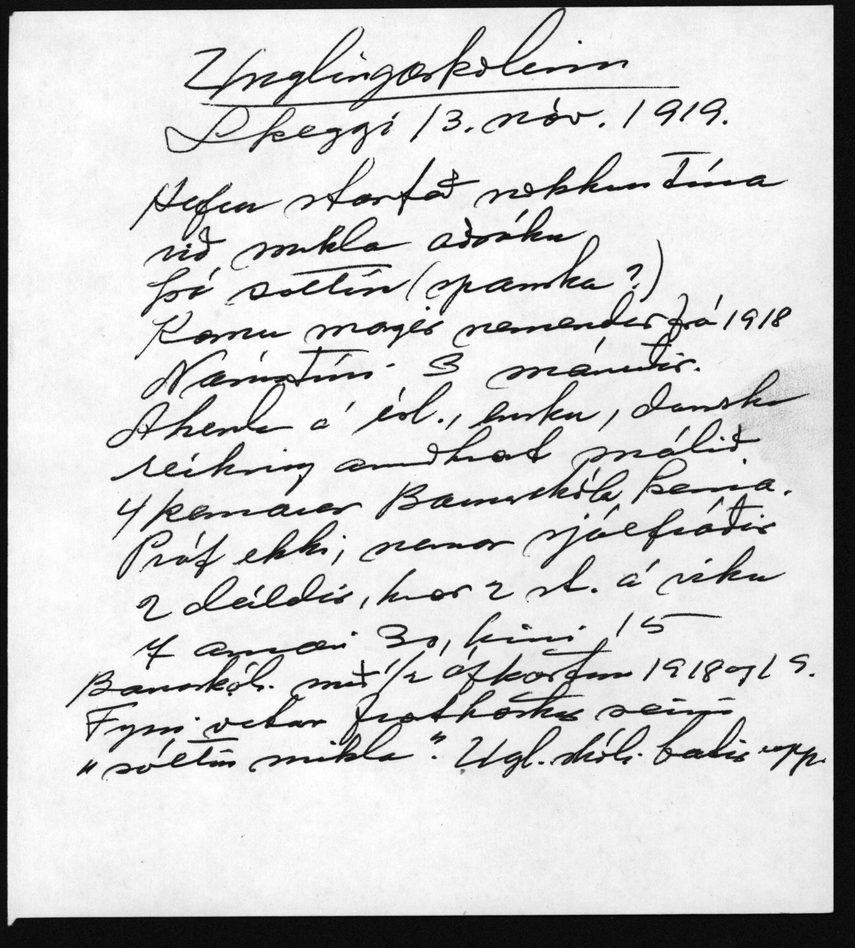 Unglingaskólinn
Skeggi 13. nóv. 1919.
Hefur starfað nokkurn tíma
við mikla aðsókn
þá sóttin (spanska?)
Komu margir nemendur frá 1918
Námstími 3 mánuðir.
Áhersla á ísl., ensku, dansku
reikning annðhvort málið
4 kennarar Barnaskóla kenna.
Próf ekki, nema sjálfráðir
2 deildir, hvor 2 st. á viku
Í annari 30, hinni 15
Barnskól. með 1/2 afköstum 1918 og 19.
Fyrri vetur frosthörkur seinni
"sóttin mikla". Ugl. skól. bætir upp.